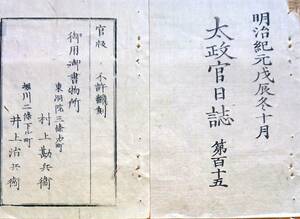 明治紀元戊辰冬十月
太政官日誌 第百十五
官板 不許翻刻
御用御書物所
東洞院三條上ル町
村上勘兵衛
堀川二條下ル町
井上治兵衛